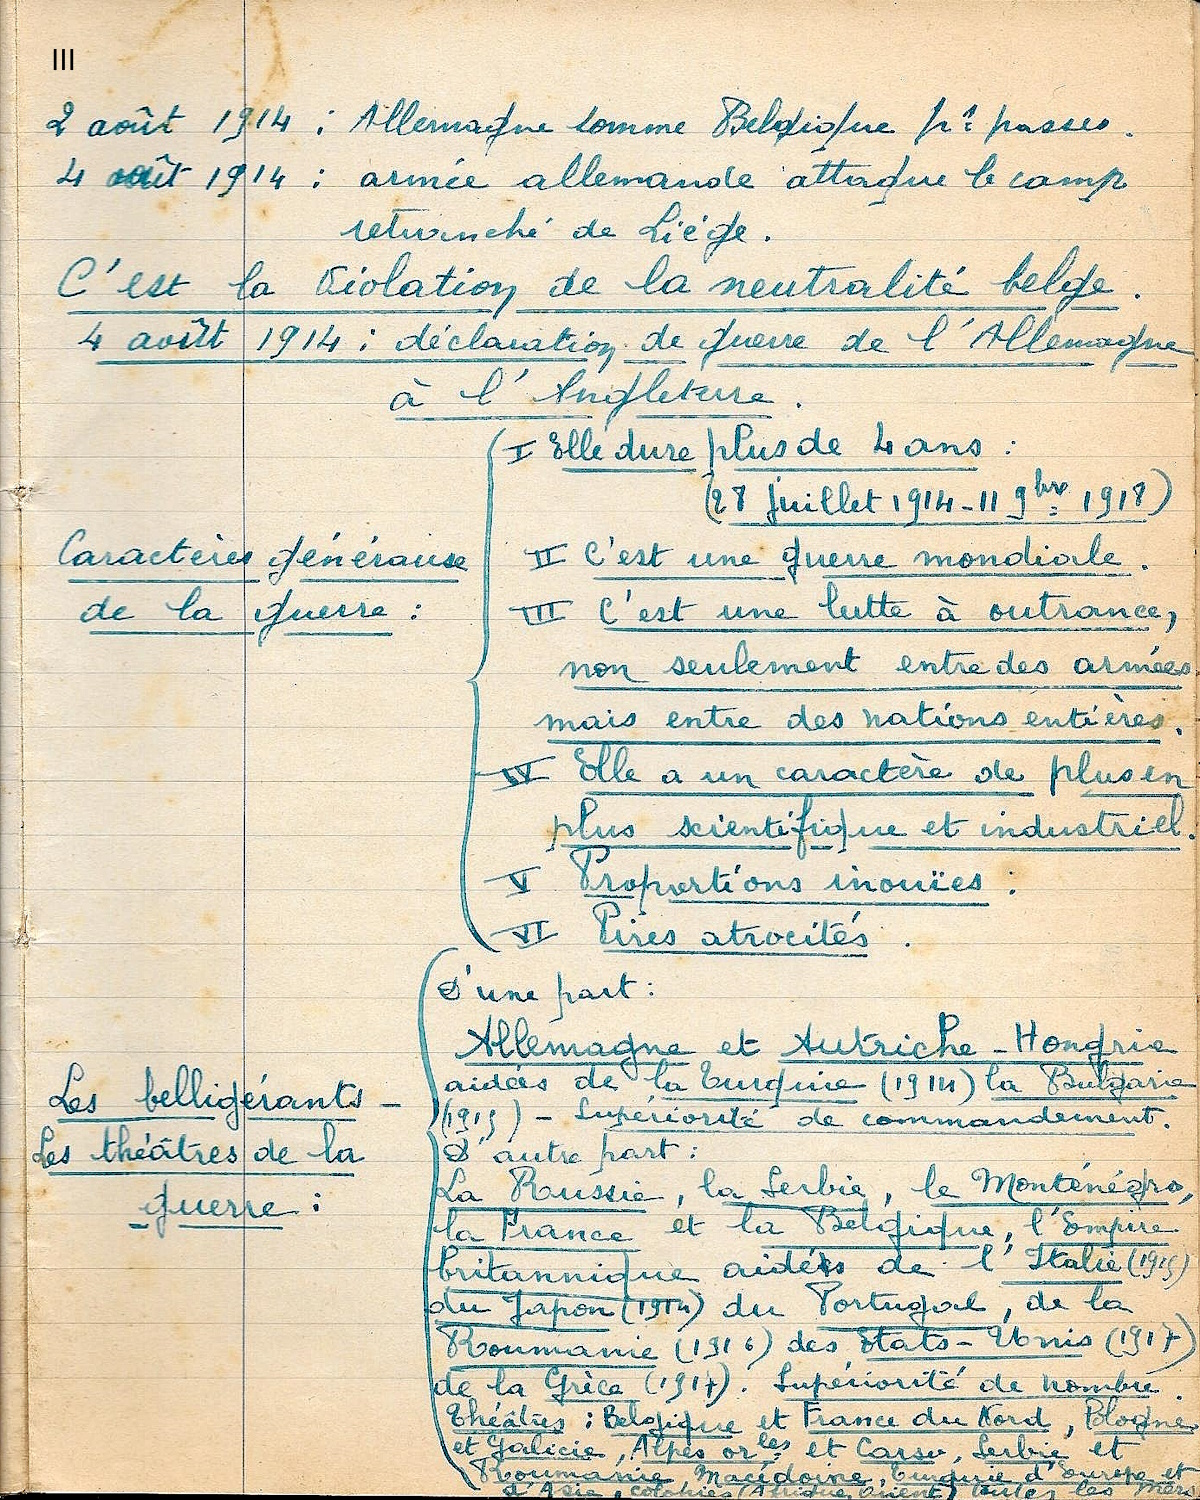 III
2 août 1914 : Allemagne somme Belgique pr passer.
4 août 1914 : armée allemande attaque le camp
retranché de Liége.
C'est la violation de la neutralité belge.
4 août 1914 : déclaration de guerre de l'Allemagne
à l'Angleterre.
I Elle dure plus de 4 ans :
(28 juillet 1914 - 11 9bre 1918)
Caractères généraux
de la guerre :
II C'est une guerre mondiale.
III C'est une lutte à outrance,
non seulement entre des armées
mais entre des nations entières.
IV Elle a un caractère de plus en
plus scientifique et industriel.
V Proportions inouïes :
VI Pires atrocités.
Les belligérants -
Les théâtres de la
guerre :
D'une part :
Allemagne et Autriche-Hongrie
aidées de la Turquie (1914) la Bulgarie
(1915) - Supériorité de commandement.
D'autre part :
La Russie, la Serbie, le Monténégro,
la France et la Belgique, l'Empire
britannique aidés de l'Italie (1915)
du Japon (1914) du Portugal, de la
Roumanie (1916) des Etats-Unis (1917)
de la Grèce (1917). Supériorité de nombre.
Théâtres : Belgique et France du Nord, Pologne
et Galicie, Alpes orles et Carso, Serbie et
Roumanie, Macédoine, Turquie d'Europe et
d'Asie, colonies (Afrique, Orient) toutes les mers